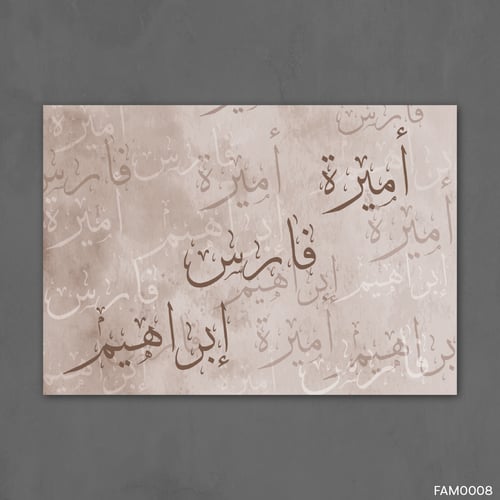 أميرة
فارس
إبراهيم
FAM0008